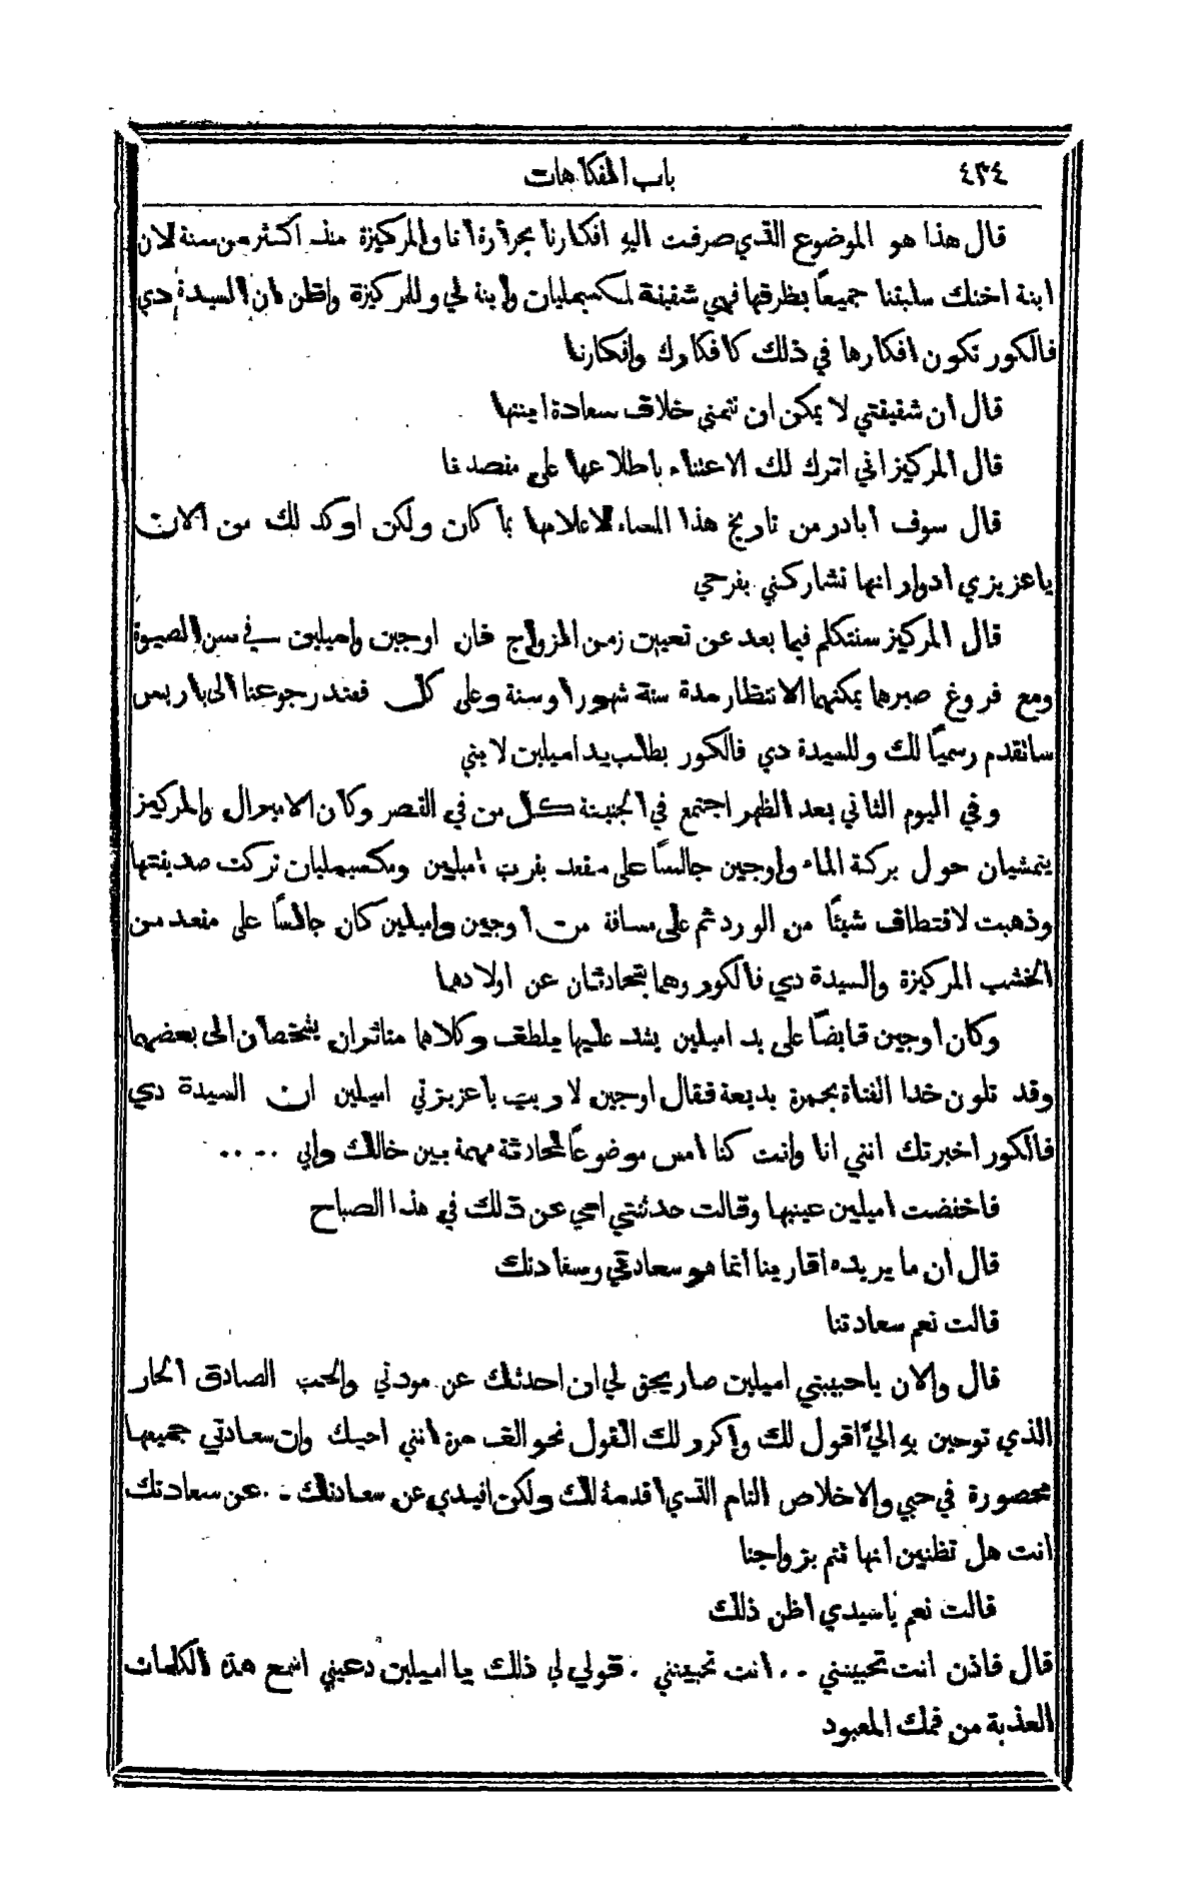 ٤٣٤
باب الفكاهات
قال هذا هو الموضوع الذي صرفت اليه افكارنا بحرارة انا والمركيزة منذ اكثر من سنة لان
ابنة اختك سلبتنا جميعاً بظرفها فهي شقيقة لمكسيمليان وابنة لي وللمركيزة واظن ان السيدة دي
فالكور تكون افكارها في ذلك كافكارك وافكارنا
قال ان شقيقتي لا يمكن ان تتمنى خلاف سعادة ابنتها
قال المركيز اني اترك لك الاعتناء باطلاعها على مقصدنا
قال سوف ابادر من تاريخ هذا المساء لاعلامها بما كان ولكن اوكد لك من الان
ياعزيزي ادوار انها تشاركني بفرحي
قال المركيز سنتكلم فيما بعد عن تعيين زمن الزواج فان اوجين واميلين في سن الصبوة
ومع فروغ صبرها يمكنهما الانتظار مدة ستة شهور او سنة وعلى كل فعند رجوعنا الى باريس
ساتقدم رسمياً لك وللسيدة دي فالكور بطلب يد اميلين لابني
وفي اليوم الثاني بعد الظهر اجتمع في الجنينة كل من في القصر وكان الاميرال والمركيز
يتمشيان حول بركة الماء واوجين جالساً على مقعد بقرب اميلين ومكسيمليان تركت صديقتها
وذهبت لاقتطاف شيئاً من الورد ثم على مسافة من اوجين واميلين كان جالساً على مقعد من
الخشب المركيزة والسيدة دي فالكور وهما يتحادثان عن اولادهما
وكان اوجين قابضاً على يد اميلين يشد عليها بلطف وكلاهما متاثران يشخصان الى بعضهما
وقد تلون خدا الفتاة بحمرة بديعة فقال اوجين لا ريب ياعزيزتي اميلين ان السيدة دي
فالكور اخبرتك انني انا وانت كنا امس موضوعاً لمحادثة مهمة بين خالك وابي ....
فاخفضت اميلين عينيها وقالت حدثتني امي عن ذلك في هذا الصباح
قال ان ما يريده اقاربنا انما هو سعادتي وسعادتك
قالت نعم سعادتنا
قال والان ياحبيبتي اميلين صار يحق لي ان احدثك عن مودتي والحب الصادق الحار
الذي توحين به اليّ اقول لك واكرر لك القول نحو الف مرة انني احبك وان سعادتي جميعها
محصورة في حبي والاخلاص التام الذي اقدمه لك ولكن افيدي عن سعادتك . . عن سعادتك
انت هل تظنين انها تتم بزواجنا
قالت نعم ياسيدي اظن ذلك
قال فاذن انت تحبينني . . انت تحبينني . قولي لي ذلك يا اميلين دعيني اسمع هذه الكلمات
العذبة من فمك المعبود